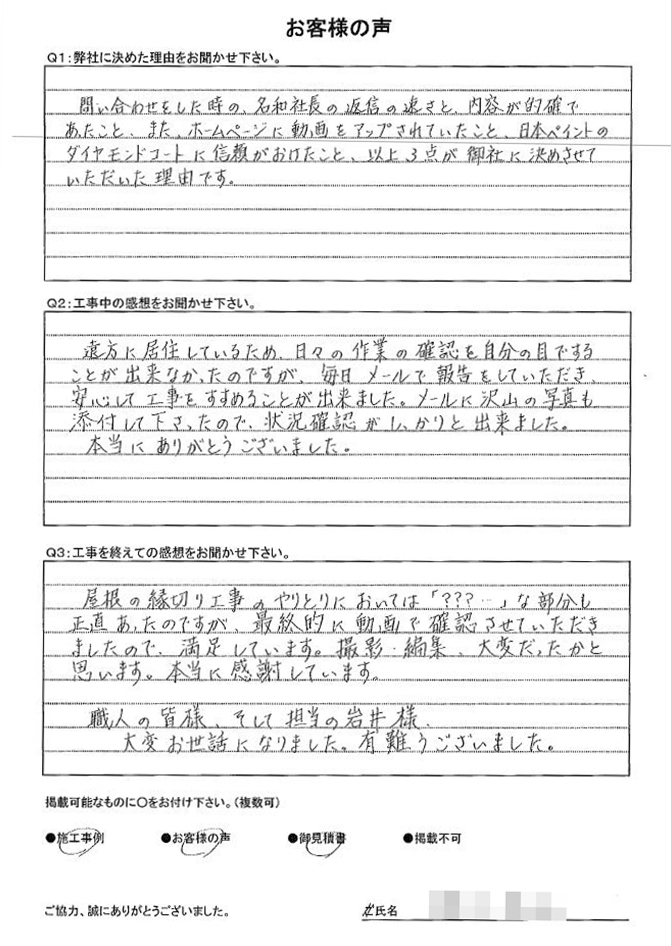 お客様の声
Q1：弊社に決めた理由をお聞かせ下さい。
問い合わせをした時の、名和社長の返信の速さと、内容が的確で
あたこと、また、ホームページに動画をアップされていたこと、日本ペイントの
ダイヤモンドコートに信頼がおけたこと、以上3点が御社に決めさせて
いただいた理由です。
Q2：工事中の感想をお聞かせ下さい。
遠方に居住しているため、日々の作業の確認を自分の目でする
ことが出来なかったのですが、毎日メールで報告をしていただき、
安心して工事をすすめることが出来ました。メールに沢山の写真も
添付して下さったので、状況確認がしっかりと出来ました。
本当にありがとうございました。
Q3：工事を終えての感想をお聞かせ下さい。
屋根の縁切り工事のやりとりにおいては「???…」な部分も
正直あったのですが、最終的に動画で確認させていただき
ましたので、満足しています。撮影・編集、大変だったかと
思います。本当に感謝しています。
職人の皆様、そして担当の岩井様、
大変お世話になりました。有難うございました。
掲載可能なものに〇をお付け下さい。（複数可）
●施工事例 ●お客様の声 ●御見積書 ●掲載不可
ご協力、誠にありがとうございました。
氏名